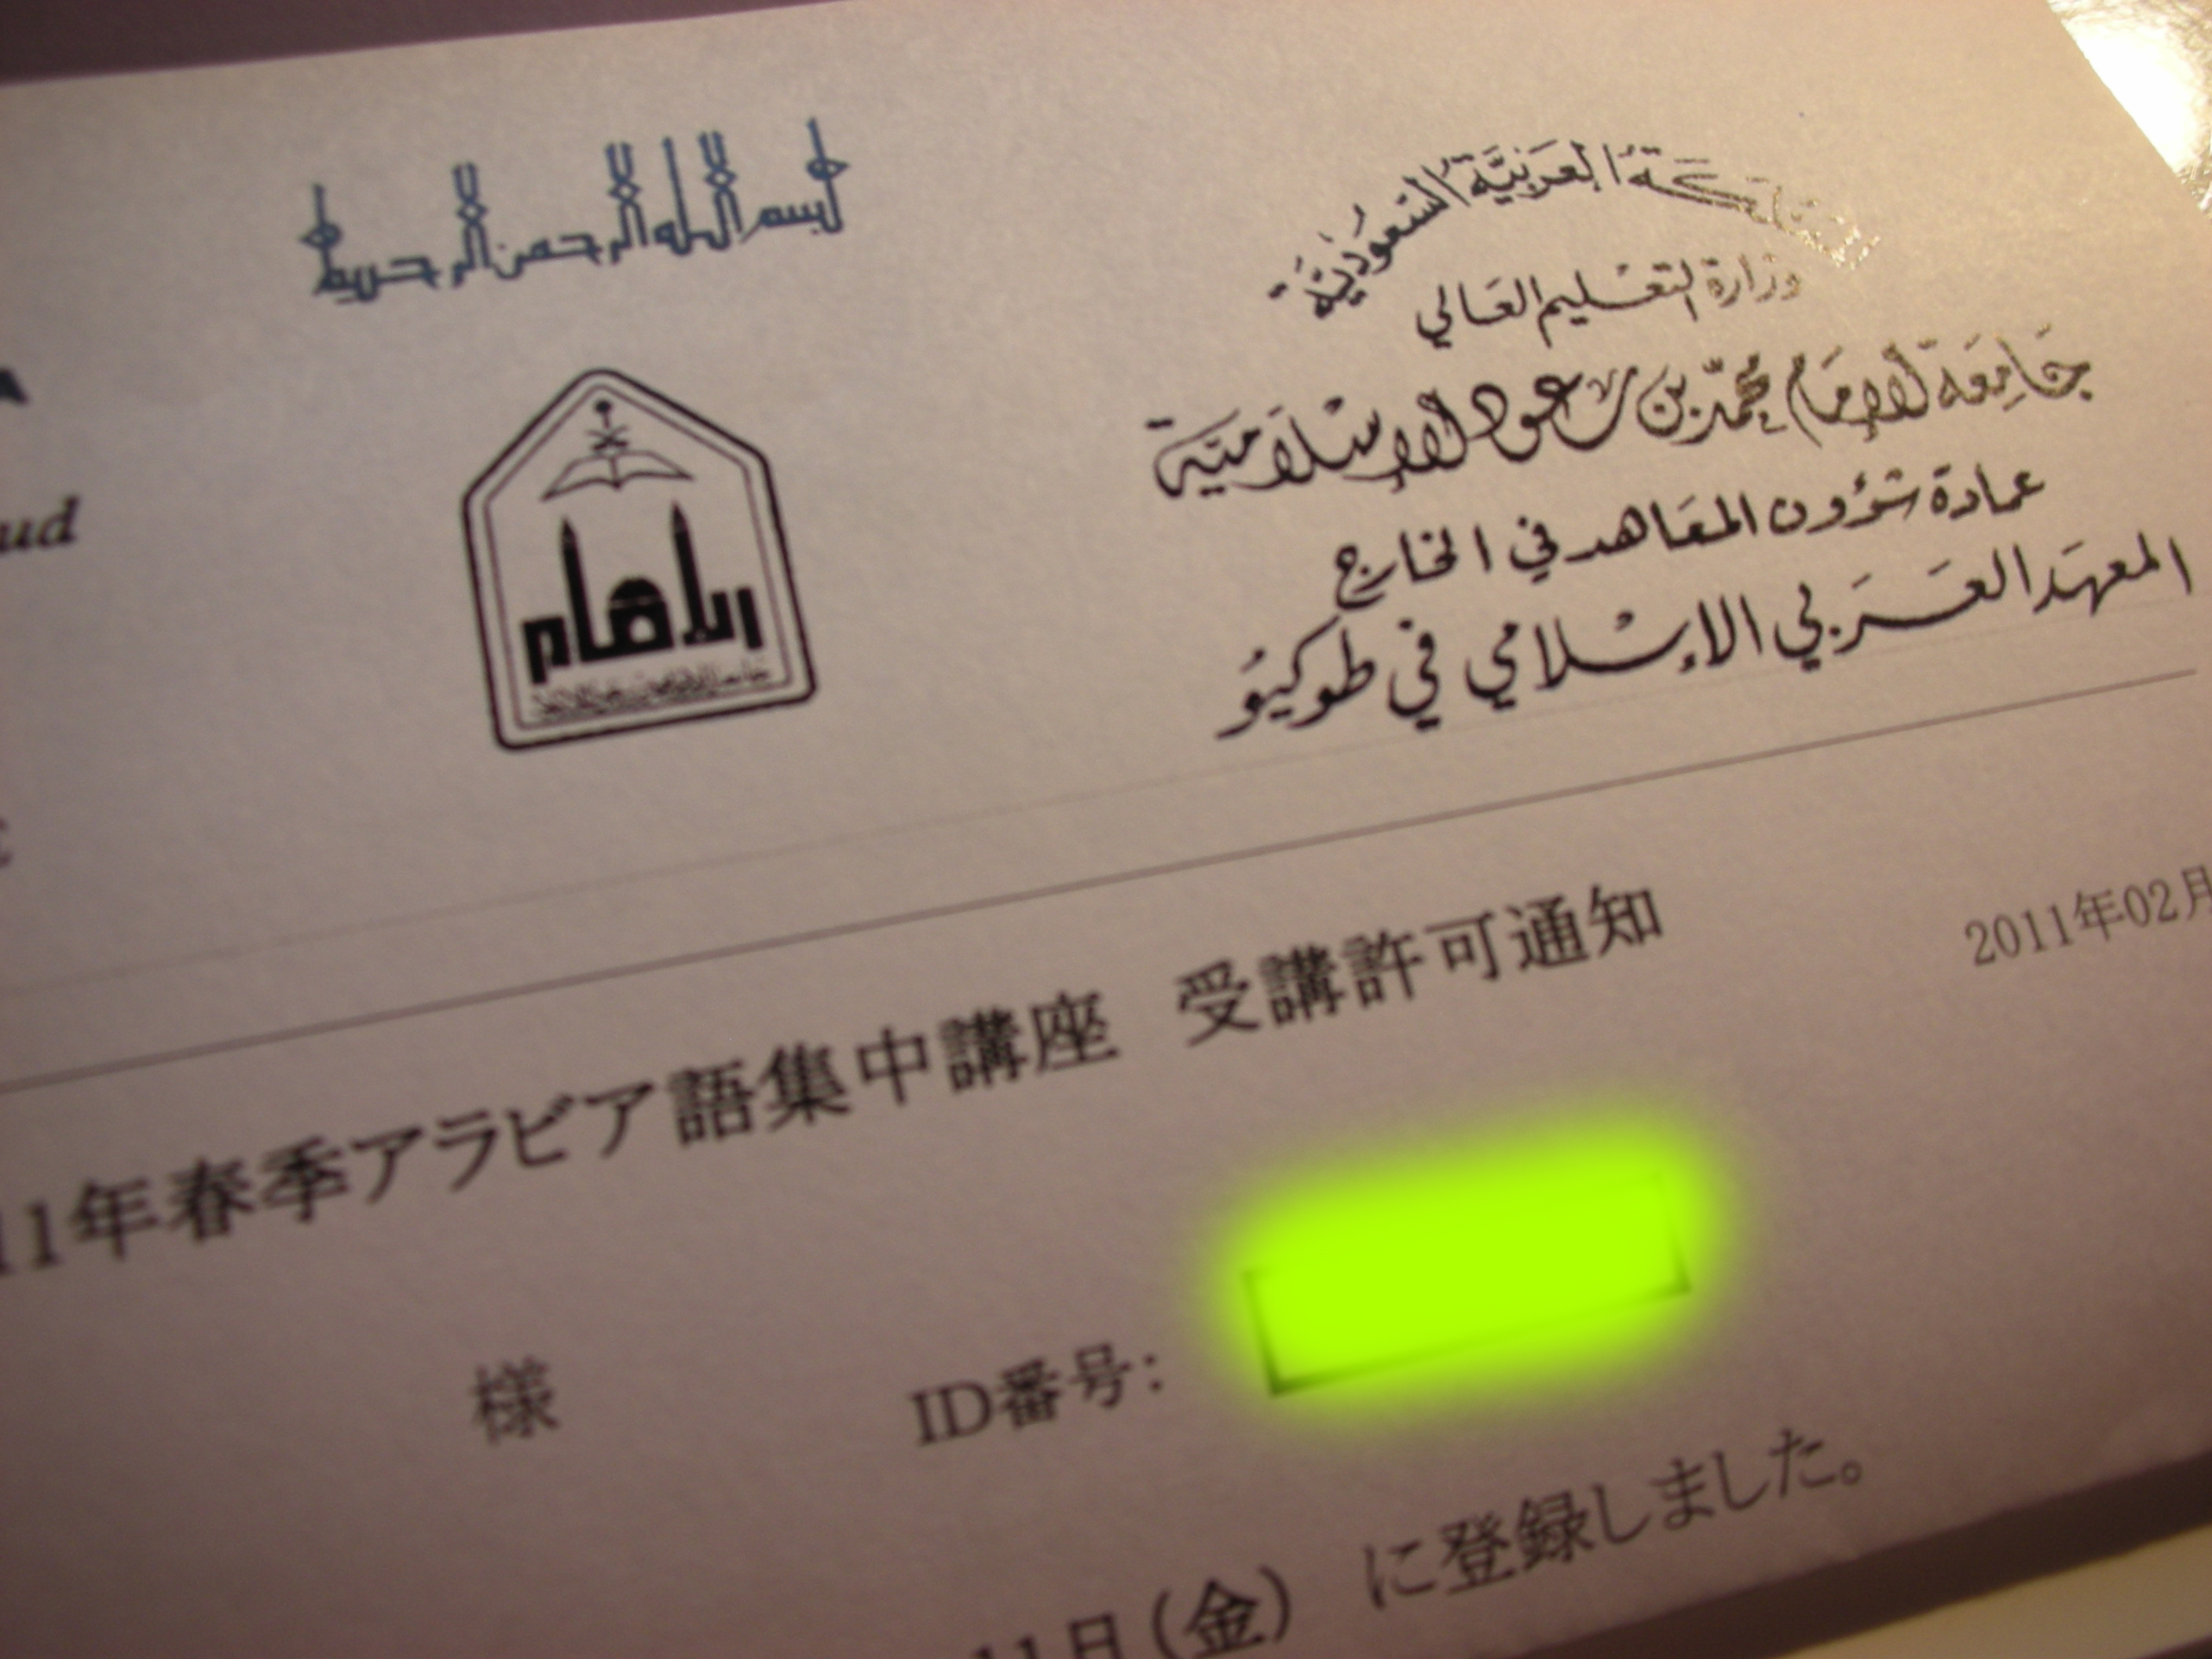 بسم الله الرحمن الرحيم
المملكة العربية السعودية
وزارة التعليم العالي
جامعة الإمام محمد بن سعود الإسلامية
عمادة شؤون المعاهد في الخارج
المعهد العربي الإسلامي في طوكيو
A
ud
الإمام
2011年02月
11年春季アラビア語集中講座 受講許可通知
様 ID番号:
11日(金) に登録しました。